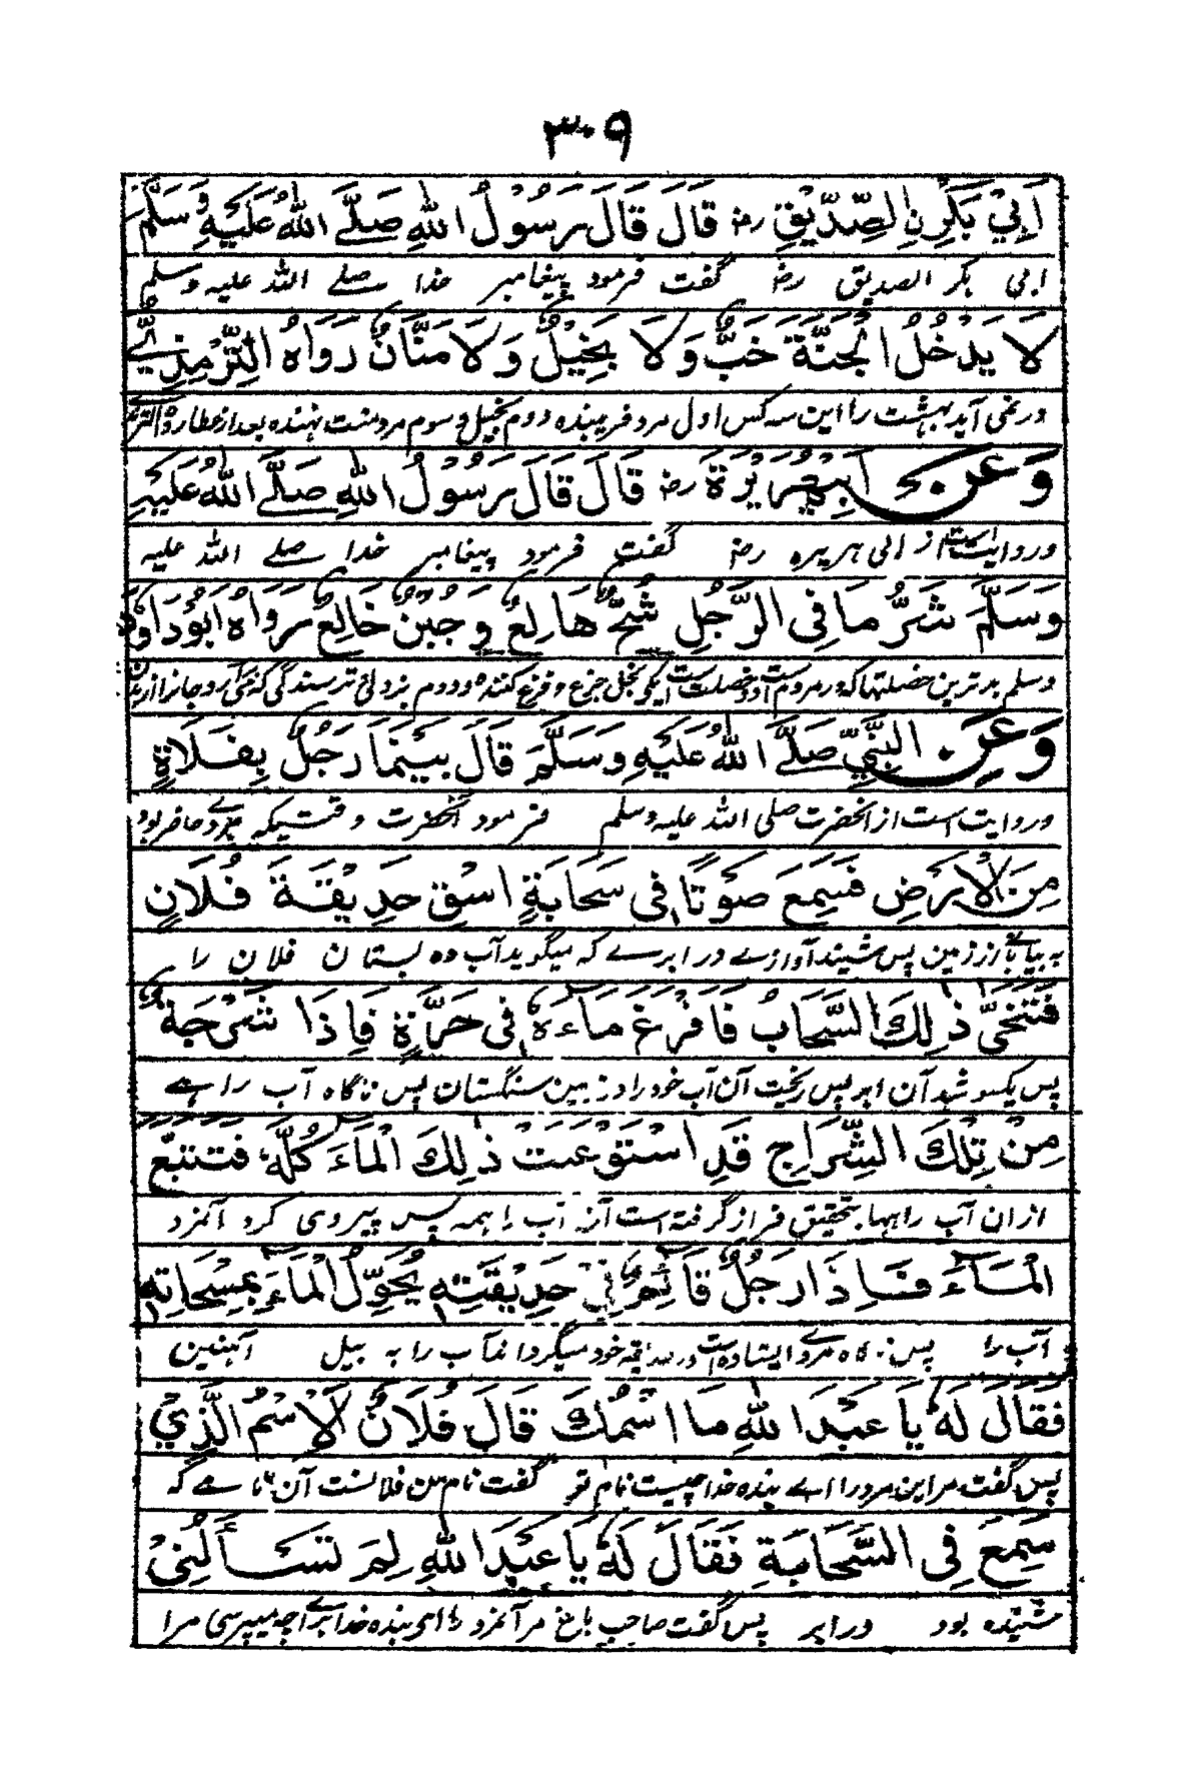 ۳۰۹
اَبِيْ بَكْرِنِ الصِّدِّيْقِ رضـ قَالَ قَالَ رَسُوْلُ اللّٰهِ صَلَّے اللّٰهُ عَلَيْهِ وَسَلَّمَ
ابی بکر الصدیق رضـ گفت فرمود پیغامبر خدا صلے اللّٰه علیه وسلم
لَا يَدْخُلُ الْجَنَّةَ خَبٌّ وَلَا بَخِيْلٌ وَلَا مَنَّانٌ رَوَاهُ التِّرْمِذِيُّ
در نمی آید بہشت را این سہ کس اول مرد فریبندہ دوم بخیل و سوم مرد منت نہندہ بعد از عطا رواه الترمذی
وَعَنْ اَبِيْ هُرَيْرَةَ رضـ قَالَ قَالَ رَسُوْلُ اللّٰهِ صَلَّے اللّٰهُ عَلَيْهِ
وروایت است از ابی ہریرہ رضـ گفت فرمود پیغامبر خدا صلے اللّٰه علیه
وَسَلَّمَ شَرُّ مَا فِی الرَّجُلِ شُحٌّ هَالِعٌ وَجُبْنٌ خَالِعٌ رَوَاهُ اَبُوْدَاوٗدَ
وسلم بدترین خصلتہا کہ در مردم است دو خصلت است یکی بخل جزع و فزع کنندہ و دوم بزدلی و ترسندگی کہ
وَعَنِ النَّبِيِّ صَلَّے اللّٰهُ عَلَيْهِ وَسَلَّمَ قَالَ بَيْنَمَا رَجُلٌ بِفَلَاةٍ
وروایت است از آنحضرت صلی اللّٰه علیه وسلم فرمود آنحضرت وقتیکہ مردے حاضر بود
مِنَ الْاَرْضِ فَسَمِعَ صَوْتًا فِی سَحَابَةٍ اَسْقِ حَدِيْقَةَ فُلَانٍ
بہ بیابانے از زمین پس شنید آوازے در ابرے کہ میگوید آب دہ بستان فلان را
فَتَنَحّٰی ذٰلِكَ السَّحَابُ فَاَفْرَغَ مَاءَهٗ فِی حَرَّةٍ فَاِذَا شَرْجَةٌ
پس یکسو شد آن ابر پس ریخت آن آب خود را در زمین سنگستان پس ناگاہ آب راہے
مِنْ تِلْكَ الشِّرَاجِ قَدِ اسْتَوْعَبَتْ ذٰلِكَ الْمَاءَ كُلَّهٗ فَتَتَبَّعَ
ازان آب راہہا بتحقیق فراز گرفته است آن آب را ہمہ پس پیروی کرد آنمرد
الْمَاءَ فَاِذَا رَجُلٌ قَائِمٌ فِیْ حَدِيْقَتِهٖ يُحَوِّلُ الْمَاءَ بِمِسْحَاتِهٖ
آب را پس ناگاہ مردے ایستادہ است در حدیقہ خود میگرداند آب را بہ بیل آہنین
فَقَالَ لَهٗ يَا عَبْدَ اللّٰهِ مَا اسْمُكَ قَالَ فُلَانٌ الْاِسْمُ الَّذِيْ
پس گفت مر این مرد را اے بندہ خدا چیست نام تو گفت نام من فلانست آن نامے کہ
سَمِعَ فِی السَّحَابَةِ فَقَالَ لَهٗ يَا عَبْدَ اللّٰهِ لِمَ تَسْأَلُنِیْ
شنیدہ بود در ابر پس گفت صاحب باغ مر آنمرد را ای بندہ خدا براے چہ میپرسی مرا